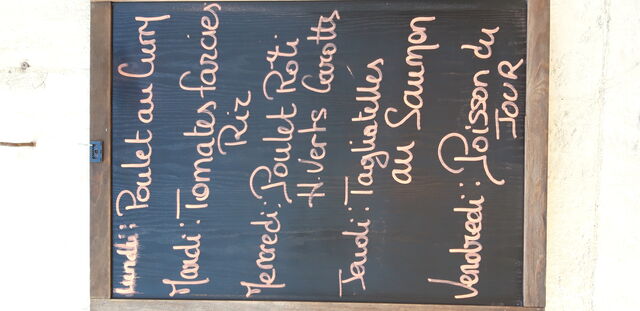 Lundi: Poulet au Curry
Mardi: Tomates farcies
Riz
Mercredi: Poulet Roti
H. Verts Carotts
Jeudi: Tagliatelles
au Saumon
Vendredi: Poisson du
JOUR